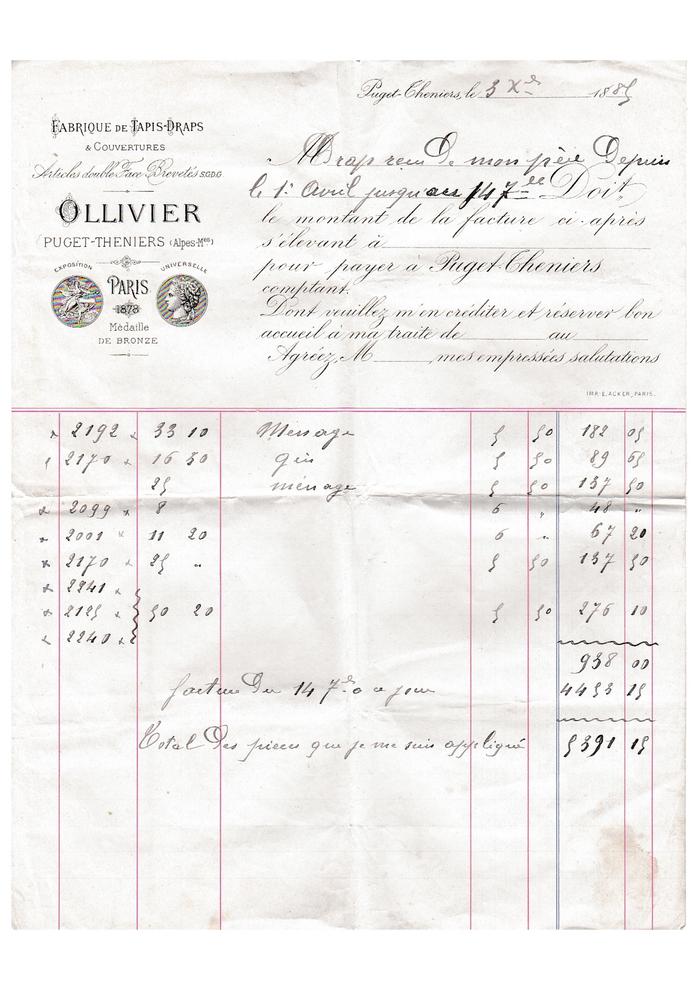 Puget-Theniers, le 3 Xbre 1885
FABRIQUE DE TAPIS-DRAPS
& COUVERTURES
Articles double Face Brevetés S.G.D.G.
OLLIVIER
PUGET-THENIERS (Alpes-Mmes)
EXPOSITION UNIVERSELLE
PARIS
1878
Médaille
DE BRONZE
Drap de mon père Depuis
le 1er Avril jusqu'au 14 7bre Doit
le montant de la facture ci-après
s'élevant à
pour payer à Puget-Theniers
comptant.
Dont veuillez m'en créditer et réserver bon
accueil à ma traite de au
Agréez, M mes empressées salutations
IMP. E. ACKER, PARIS.
x 2192 x 33 10 Ménage 5 50 182 05
2170 x 16 30 gris 5 50 89 65
25 ménage 5 50 137 50
x 2099 x 8 6 " 48 "
x 2001 x 11 20 6 " 67 20
x 2170 x 25 " 5 50 137 50
x 2241 x
x 2125 x 50 20 5 50 276 10
x 2240 x
938 00
facture du 14 7bre a ce jour 4453 15
Total des pieces que je me suis appliqué 5391 15